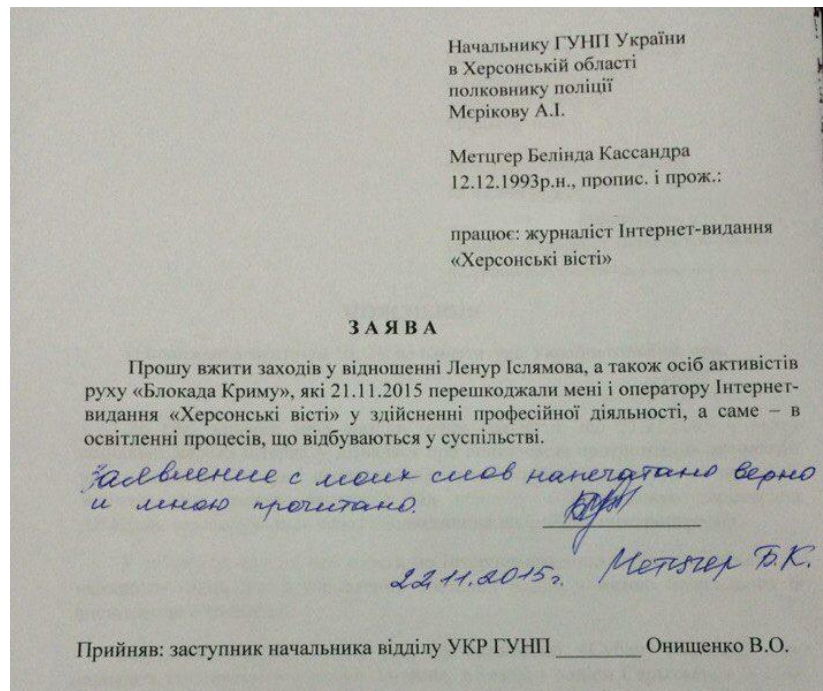 Начальнику ГУНП України
в Херсонській області
полковнику поліції
Мєрікову А.І.
Метцгер Белінда Кассандра
12.12.1993р.н., пропис. і прож.:
працює: журналіст Інтернет-видання
«Херсонські вісті»
З А Я В А
Прошу вжити заходів у відношенні Ленур Іслямова, а також осіб активістів
руху «Блокада Криму», які 21.11.2015 перешкоджали мені і оператору Інтернет-
видання «Херсонські вісті» у здійсненні професійної діяльності, а саме – в
освітленні процесів, що відбуваються у суспільстві.
Заявление с моих слов напечатано верно
и мною прочитано.
22.11.2015г. Метцгер Б.К.
Прийняв: заступник начальника відділу УКР ГУНП ________ Онищенко В.О.